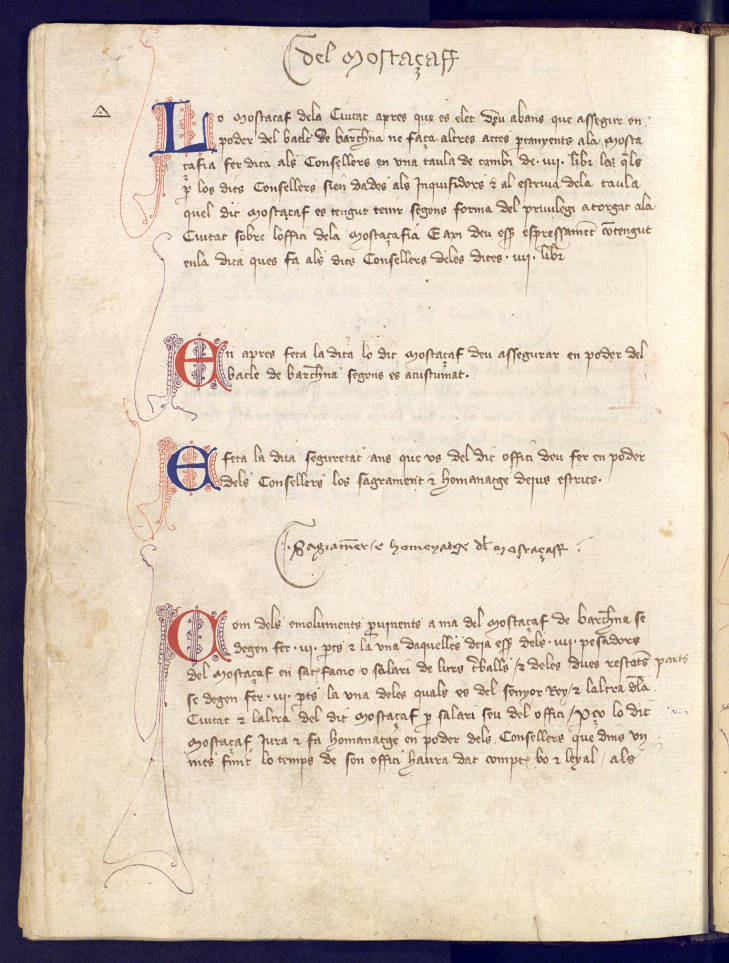 del Mostaçaff
Lo Mostaçaf dela Ciutat apres que es elet deu abans que assegur en
poder del batle de barchna ne faça altres actes ptanyents ala Mosta
çafia fer dita als Consellers en una taula de cambi de .viii. libr les qls
p los dits Consellers sien dades als Inquisidors & al escriva dela taula
quel dit Mostaçaf es tengut tenir segons forma del priuilegi atorgat ala
Ciutat sobre loffici dela Mostaçafia E axi deu esser espressament cotengut
enla dita ques fa als dits Consellers deles dites .viii. libr
En apres feta la dita lo dit Mostaçaf deu assegurar en poder del
batle de barchna segons es acustumat.
E feta la dita seguretat ans que us del dit offici deu fer en poder
dels Consellers los sagrament & homanatge dejus escrits.
Sagrament e homenatge dl Mostaçaff
Com dels emoluments puinents a ma del Mostaçaf de barchna se
degen fer .iii. pts & la una daquelles deja esser dels .iii. pesadors
del Mostaçaf en satisfaccio o salari de lurs treballs / & deles dues restants parts
se degen fer .iii. pts la una deles quals es del senyor Rey / & laltra dla
Ciutat & laltra del dit Mostaçaf p salari seu del offici / Pço lo dit
Mostaçaf Jura & fa homanatge en poder dels Consellers que dins un
mes finit lo temps de son offici haura dat compte bo & leyal / als